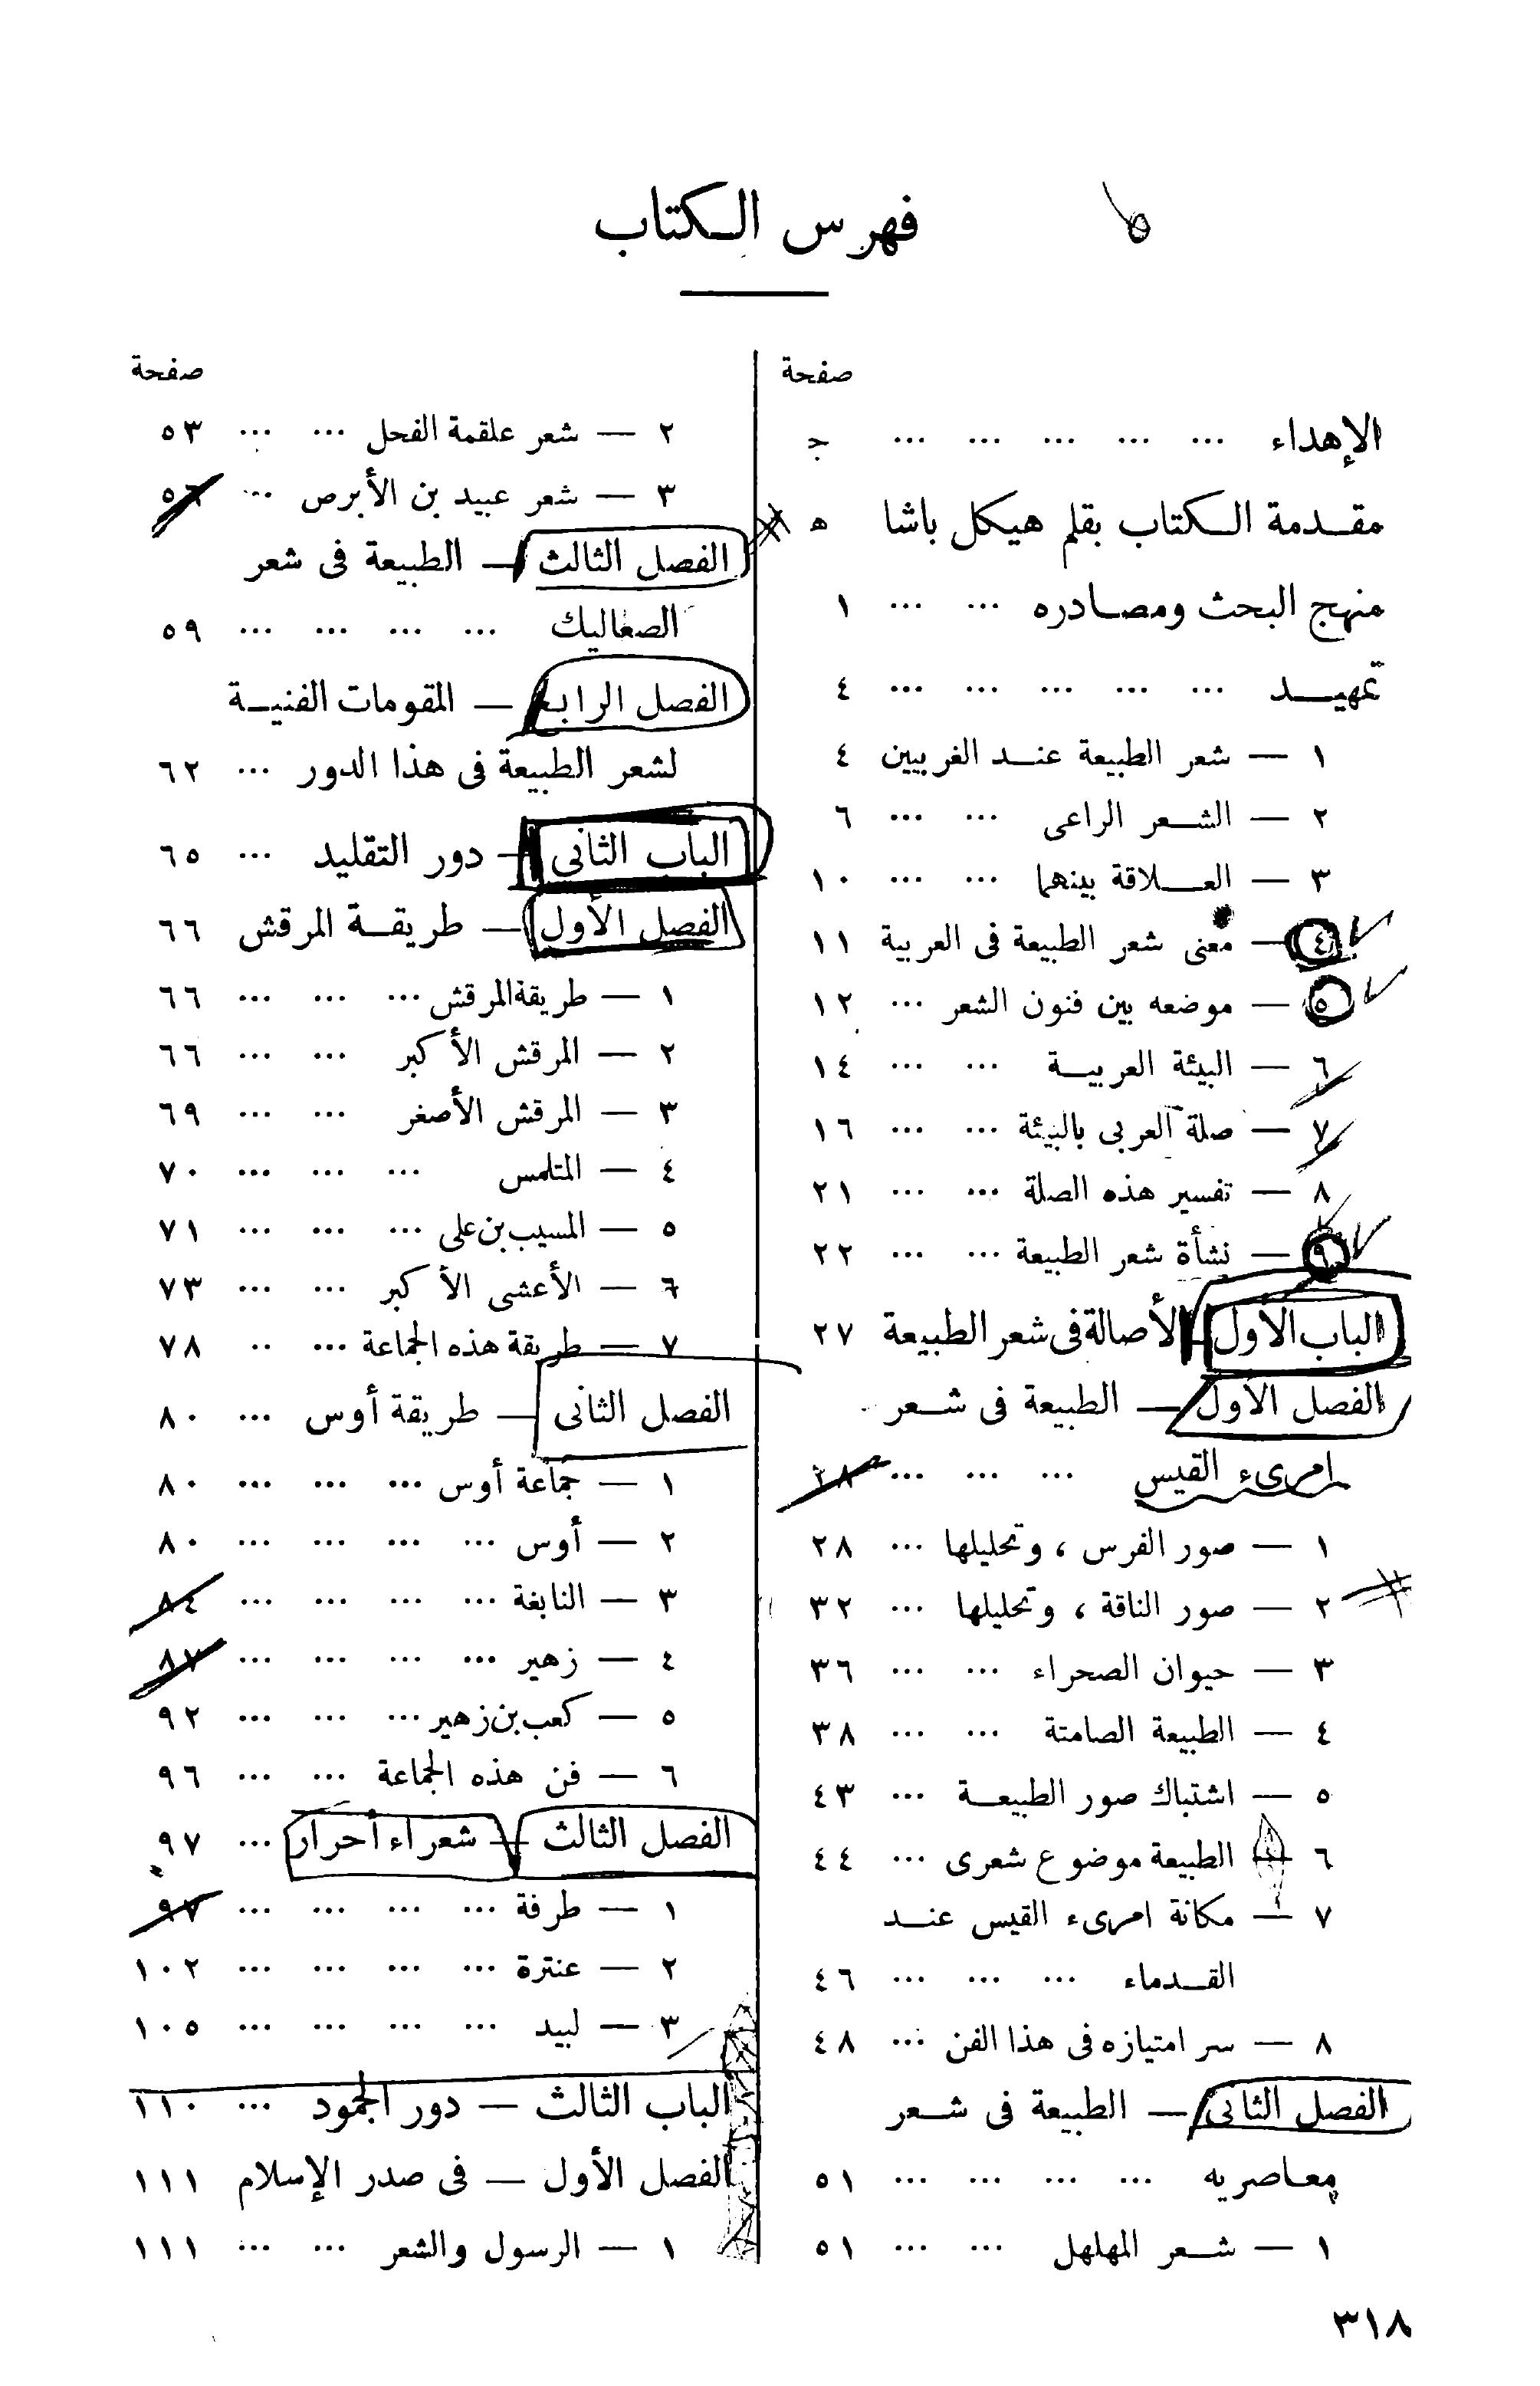 فهرس الكتاب
صفحة
الإهداء ... ... ... ... ... ج
مقدمة الكتاب بقلم هيكل باشا ه
منهج البحث ومصادره ... ... ١
تمهيد ... ... ... ... ... ٤
١ — شعر الطبيعة عند الغربيين ٤
٢ — الشعر الراعى ... ... ٦
٣ — العلاقة بينهما ... ... ١٠
٤ — معنى شعر الطبيعة فى العربية ١١
٥ — موضعه بين فنون الشعر ... ١٢
٦ — البيئة العربية ... ... ١٤
٧ — صلة العربى بالبيئة ... ... ١٦
٨ — تفسير هذه الصلة ... ... ٢١
٩ — نشأة شعر الطبيعة ... ... ٢٢
الباب الأول — الأصالة فى شعر الطبيعة ٢٧
الفصل الأول — الطبيعة فى شعر
امرىء القيس ... ... ... ٢٨
١ — صور الفرس ، وتحليلها ... ٢٨
٢ — صور الناقة ، وتحليلها ... ٣٢
٣ — حيوان الصحراء ... ... ٣٦
٤ — الطبيعة الصامتة ... ... ٣٨
٥ — اشتباك صور الطبيعة ... ٤٣
٦ — الطبيعة موضوع شعرى ... ٤٤
٧ — مكانة امرىء القيس عند
القدماء ... ... ... ٤٦
٨ — سر امتيازه فى هذا الفن ... ٤٨
الفصل الثانى — الطبيعة فى شعر
معاصريه ... ... ... ... ٥١
١ — شعر المهلهل ... ... ٥١
صفحة
٢ — شعر علقمة الفحل ... ... ٥٣
٣ — شعر عبيد بن الأبرص ... ٥٦
الفصل الثالث — الطبيعة فى شعر
الصعاليك ... ... ... ... ٥٩
الفصل الرابع — المقومات الفنية
لشعر الطبيعة فى هذا الدور ... ٦٢
الباب الثانى — دور التقليد ... ٦٥
الفصل الأول — طريقة المرقش ٦٦
١ — طريقة المرقش ... ... ... ٦٦
٢ — المرقش الأكبر ... ... ٦٦
٣ — المرقش الأصغر ... ... ٦٩
٤ — المتلمس ... ... ... ٧٠
٥ — المسيب بن على ... ... ... ٧١
٦ — الأعشى الأكبر ... ... ٧٣
٧ — طريقة هذه الجماعة ... .. ٧٨
الفصل الثانى — طريقة أوس ... ٨٠
١ — جماعة أوس ... ... ... ٨٠
٢ — أوس ... ... ... ... ٨٠
٣ — النابغة ... ... ... ... ٨٤
٤ — زهير ... ... ... ... ٨٧
٥ — كعب بن زهير ... ... ... ٩٢
٦ — فن هذه الجماعة ... ... ٩٦
الفصل الثالث — شعراء أحرار ... ٩٧
١ — طرفة ... ... ... ... ٩٧
٢ — عنترة ... ... ... ... ١٠٢
٣ — لبيد ... ... ... ... ١٠٥
الباب الثالث — دور الجمود ... ١١٠
الفصل الأول — فى صدر الإسلام ١١١
١ — الرسول والشعر ... ... ١١١
٣١٨